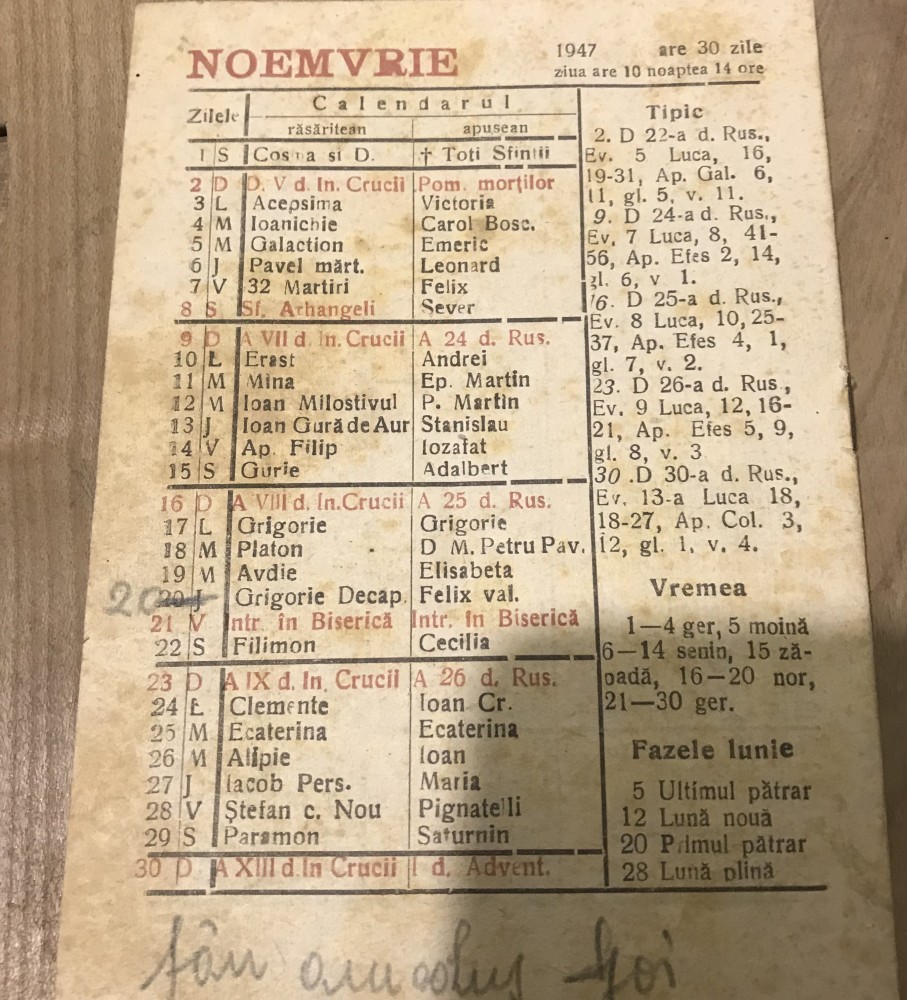 NOEMVRIE
1947 are 30 zile
ziua are 10 noaptea 14 ore
Zilele
Calendarul
răsăritean apusean
1 S Cosma si D. † Toti Sfintii
2 D D. V d. In. Crucii Pom. morților
3 L Acepsima Victoria
4 M Ioanichie Carol Bosc.
5 M Galaction Emeric
6 J Pavel mărt. Leonard
7 V 32 Martiri Felix
8 S Sf. Arhangeli Sever
9 D A VII d. In. Crucii A 24 d. Rus.
10 L Erast Andrei
11 M Mina Ep. Martin
12 M Ioan Milostivul P. Martin
13 J Ioan Gură de Aur Stanislau
14 V Ap. Filip Iozafat
15 S Gurie Adalbert
16 D A VIII d. In. Crucii A 25 d. Rus.
17 L Grigorie Grigorie
18 M Platon D M. Petru Pav.
19 M Avdie Elisabeta
20 20 J Grigorie Decap. Felix val.
21 V Intr. în Biserică Intr. în Biserică
22 S Filimon Cecilia
23 D A IX d. In. Crucii A 26 d. Rus.
24 L Clemente Ioan Cr.
25 M Ecaterina Ecaterina
26 M Alipie Ioan
27 J Iacob Pers. Maria
28 V Ștefan c. Nou Pignatelli
29 S Paramon Saturnin
30 D A XIII d In Crucii I d. Advent.
Tipic
2. D 22-a d. Rus.,
Ev. 5 Luca, 16,
19-31, Ap. Gal. 6,
11, gl. 5, v. 11.
9. D 24-a d. Rus.,
Ev. 7 Luca, 8, 41-
56, Ap. Efes 2, 14,
gl. 6, v 1.
16. D 25-a d. Rus.,
Ev. 8 Luca, 10, 25-
37, Ap. Efes 4, 1,
gl. 7, v. 2.
23. D 26-a d. Rus.,
Ev. 9 Luca, 12, 16-
21, Ap. Efes 5, 9,
gl. 8, v. 3
30 .D 30-a d. Rus.,
Ev. 13-a Luca 18,
18-27, Ap. Col. 3,
12, gl. 1, v. 4.
Vremea
1—4 ger, 5 moină
6—14 senin, 15 ză-
padă, 16—20 nor,
21—30 ger.
Fazele lunie
5 Ultimul pătrar
12 Lună nouă
20 Primul pătrar
28 Lună plină